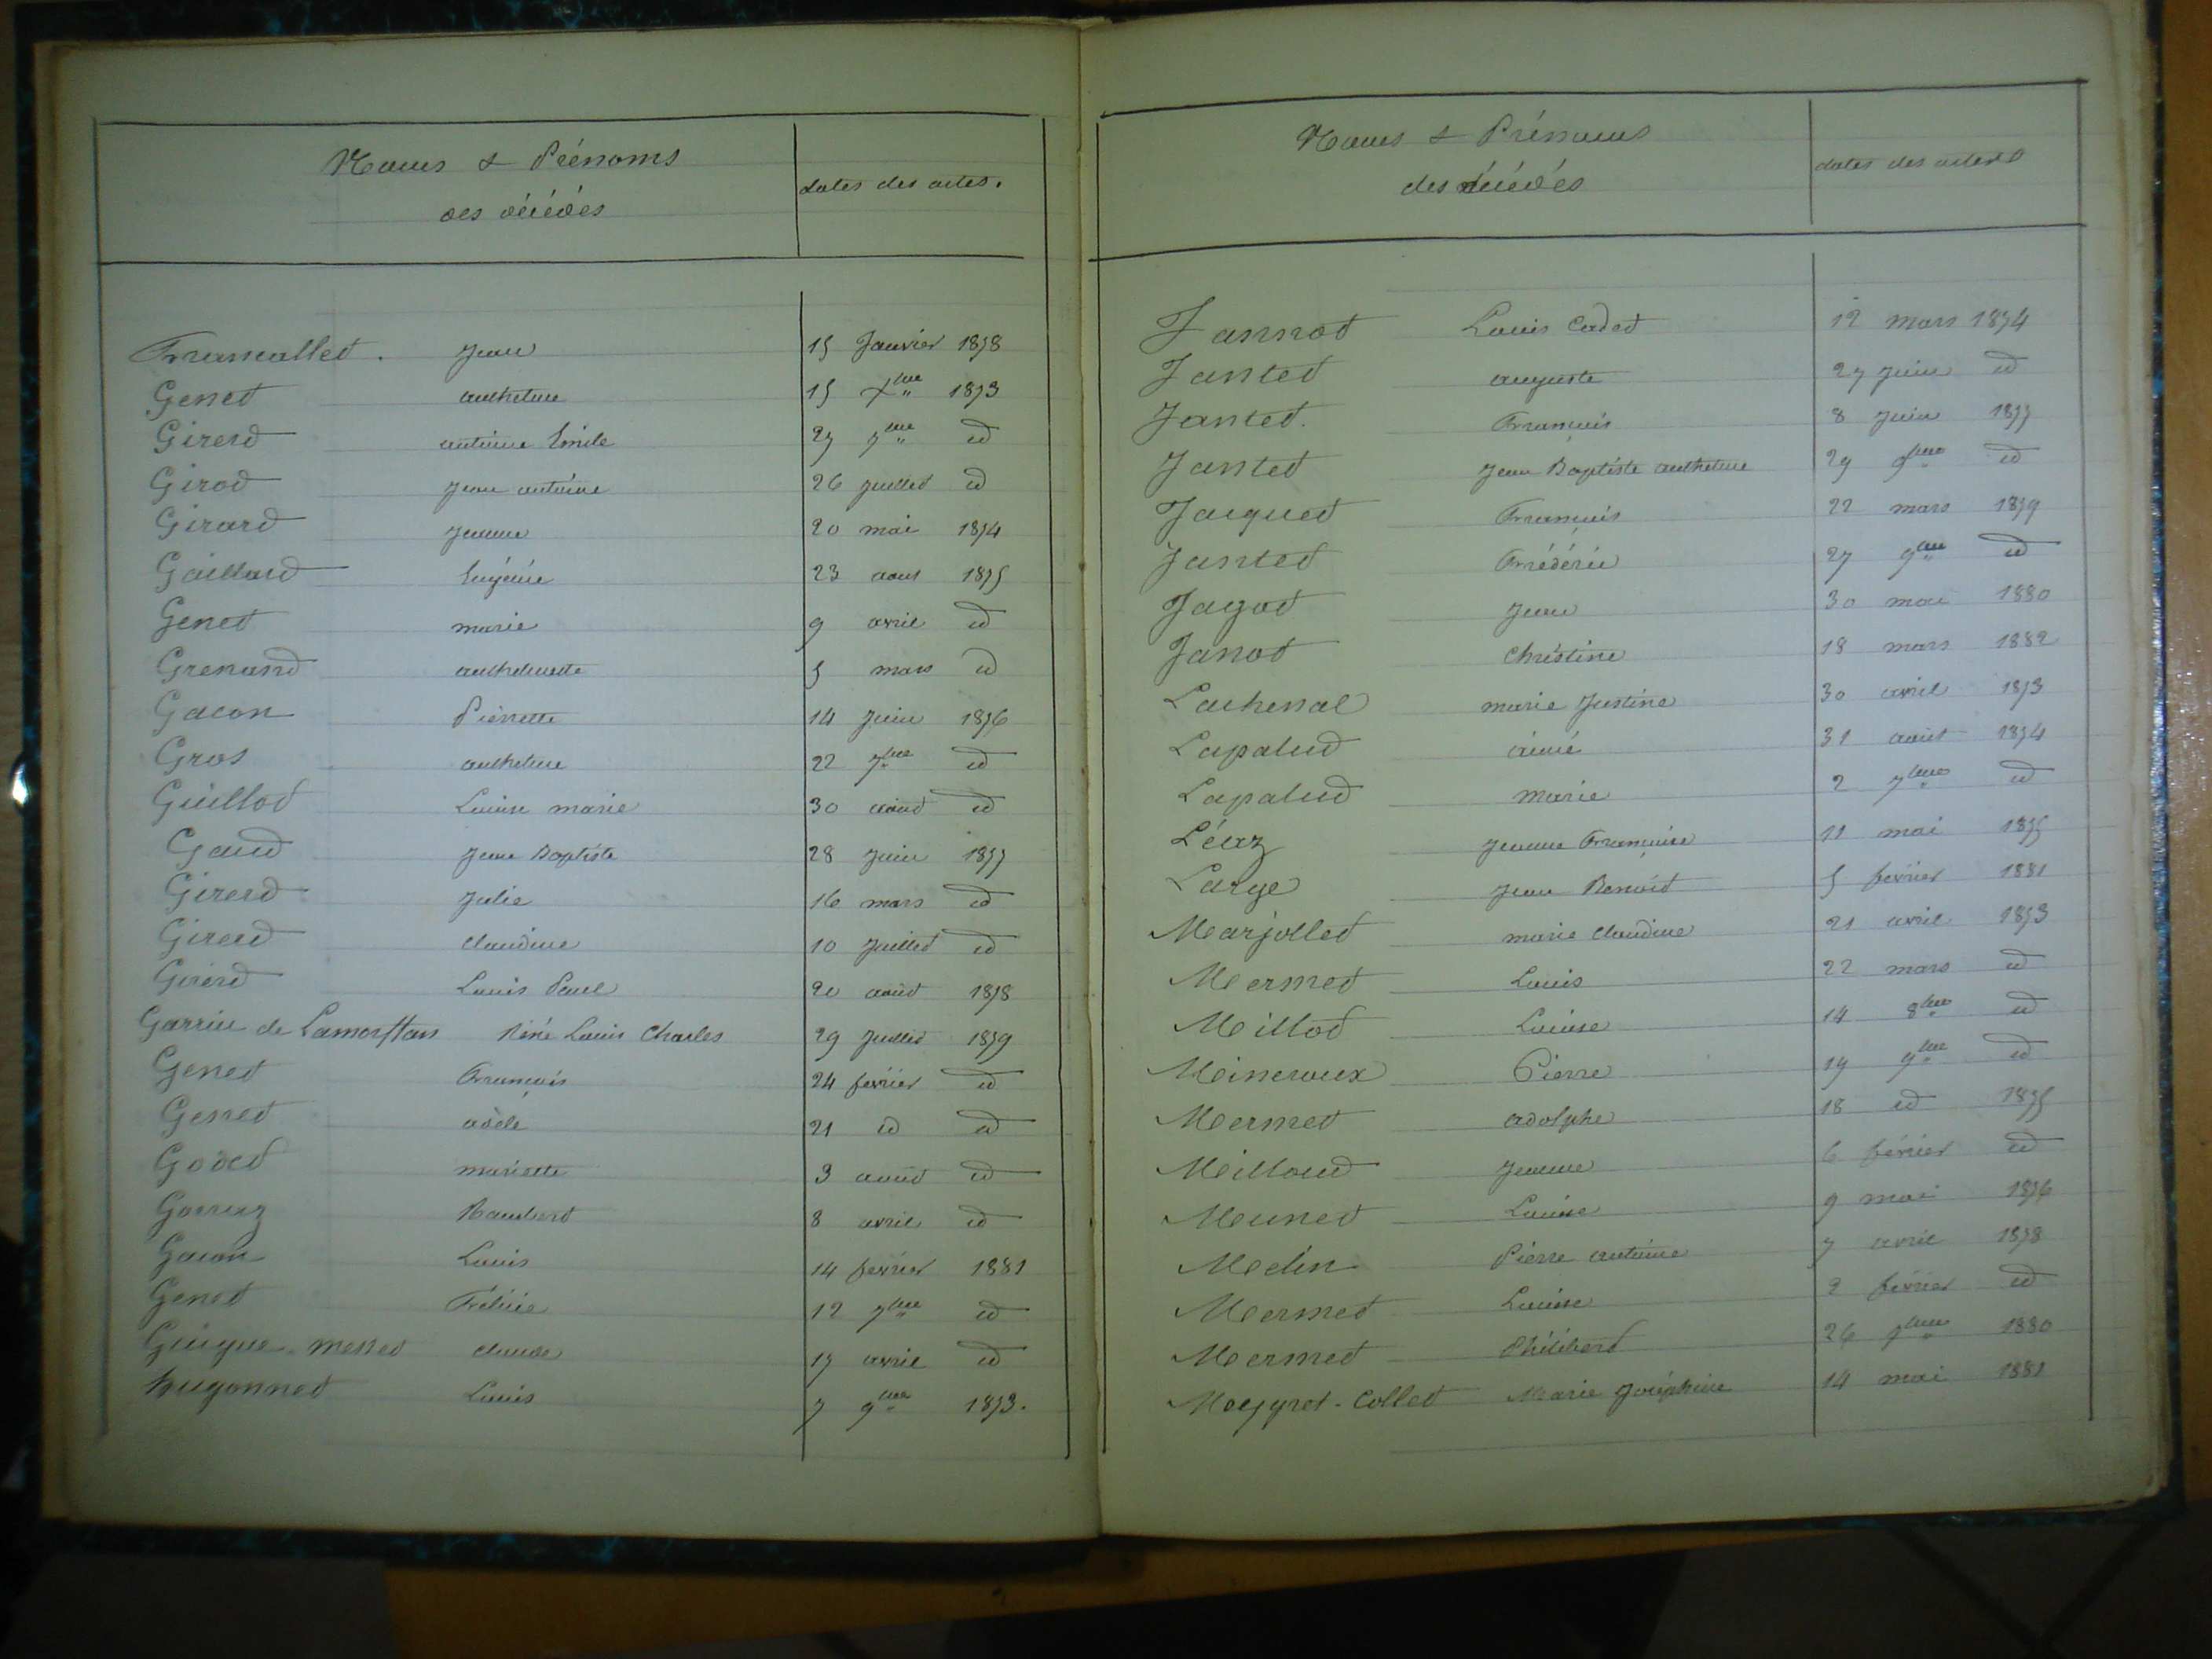 Noms & Prénoms
des décédés
dates des actes.
Francallet. Jean 15 Janvier 1878
Genet anthelme 15 Xbre 1873
Girerd antoine Emile 27 7bre id
Girod Jean antoine 26 Juillet id
Girard Jeanne 20 mai 1874
Gaillard Eugénie 23 aout 1875
Genet marie 9 avril id
Grenand anthelmette 5 mars id
Gacon Pierrette 14 Juin 1876
Gros anthelme 22 7bre id
Guillot Louise marie 30 août id
Gaud Jean Baptiste 28 Juin 1877
Girerd Julie 16 mars id
Girerd claudine 10 Juillet id
Girerd Louis Paul 20 août 1878
Garrin de Lamorflan Réné Louis Charles 29 Juillet 1879
Genet François 24 février id
Genet adèle 21 id id
Godet mariette 3 août id
Gorraz Rambert 8 avril id
Gacon Louis 14 février 1881
Genet 12 7bre id
Guigue-messet claude 17 avril id
hugonnet Louis 7 9bre 1873.
Noms & Prénoms
des décédés
dates des actes
Jannot Louis Cadet 12 mars 1874
Jantet auguste 27 Juin id
Jantet. François 8 Juin 1877
Jantet Jean Baptiste anthelme 29 9bre id
Jacquet François 22 mars 1879
Jantet Frédéric 27 9bre id
Jagot Jean 30 mai 1880
Janot Christine 18 mars 1882
Lachenal marie Justine 30 avril 1873
Lapalud aimé 31 août 1874
Lapalud Marie 2 7bre id
Léaz Jeanne Françoise 11 mai 1875
Large Jean Benoit 5 février 1881
Marjollet marie claudine 21 avril 1873
Mermet Louis 22 mars id
Millot Louise 14 8bre id
Mineroux Pierre 19 9bre id
Mermet adolphe 18 id 1875
Milloud Jeanne 6 février id
Meunet Louise 9 mai 1876
Melin Pierre antoine 7 avril 1878
Mermet Louise 2 février id
Mermet Philibert 26 7bre 1880
Meyyret-Collet Marie Joséphine 14 mai 1881